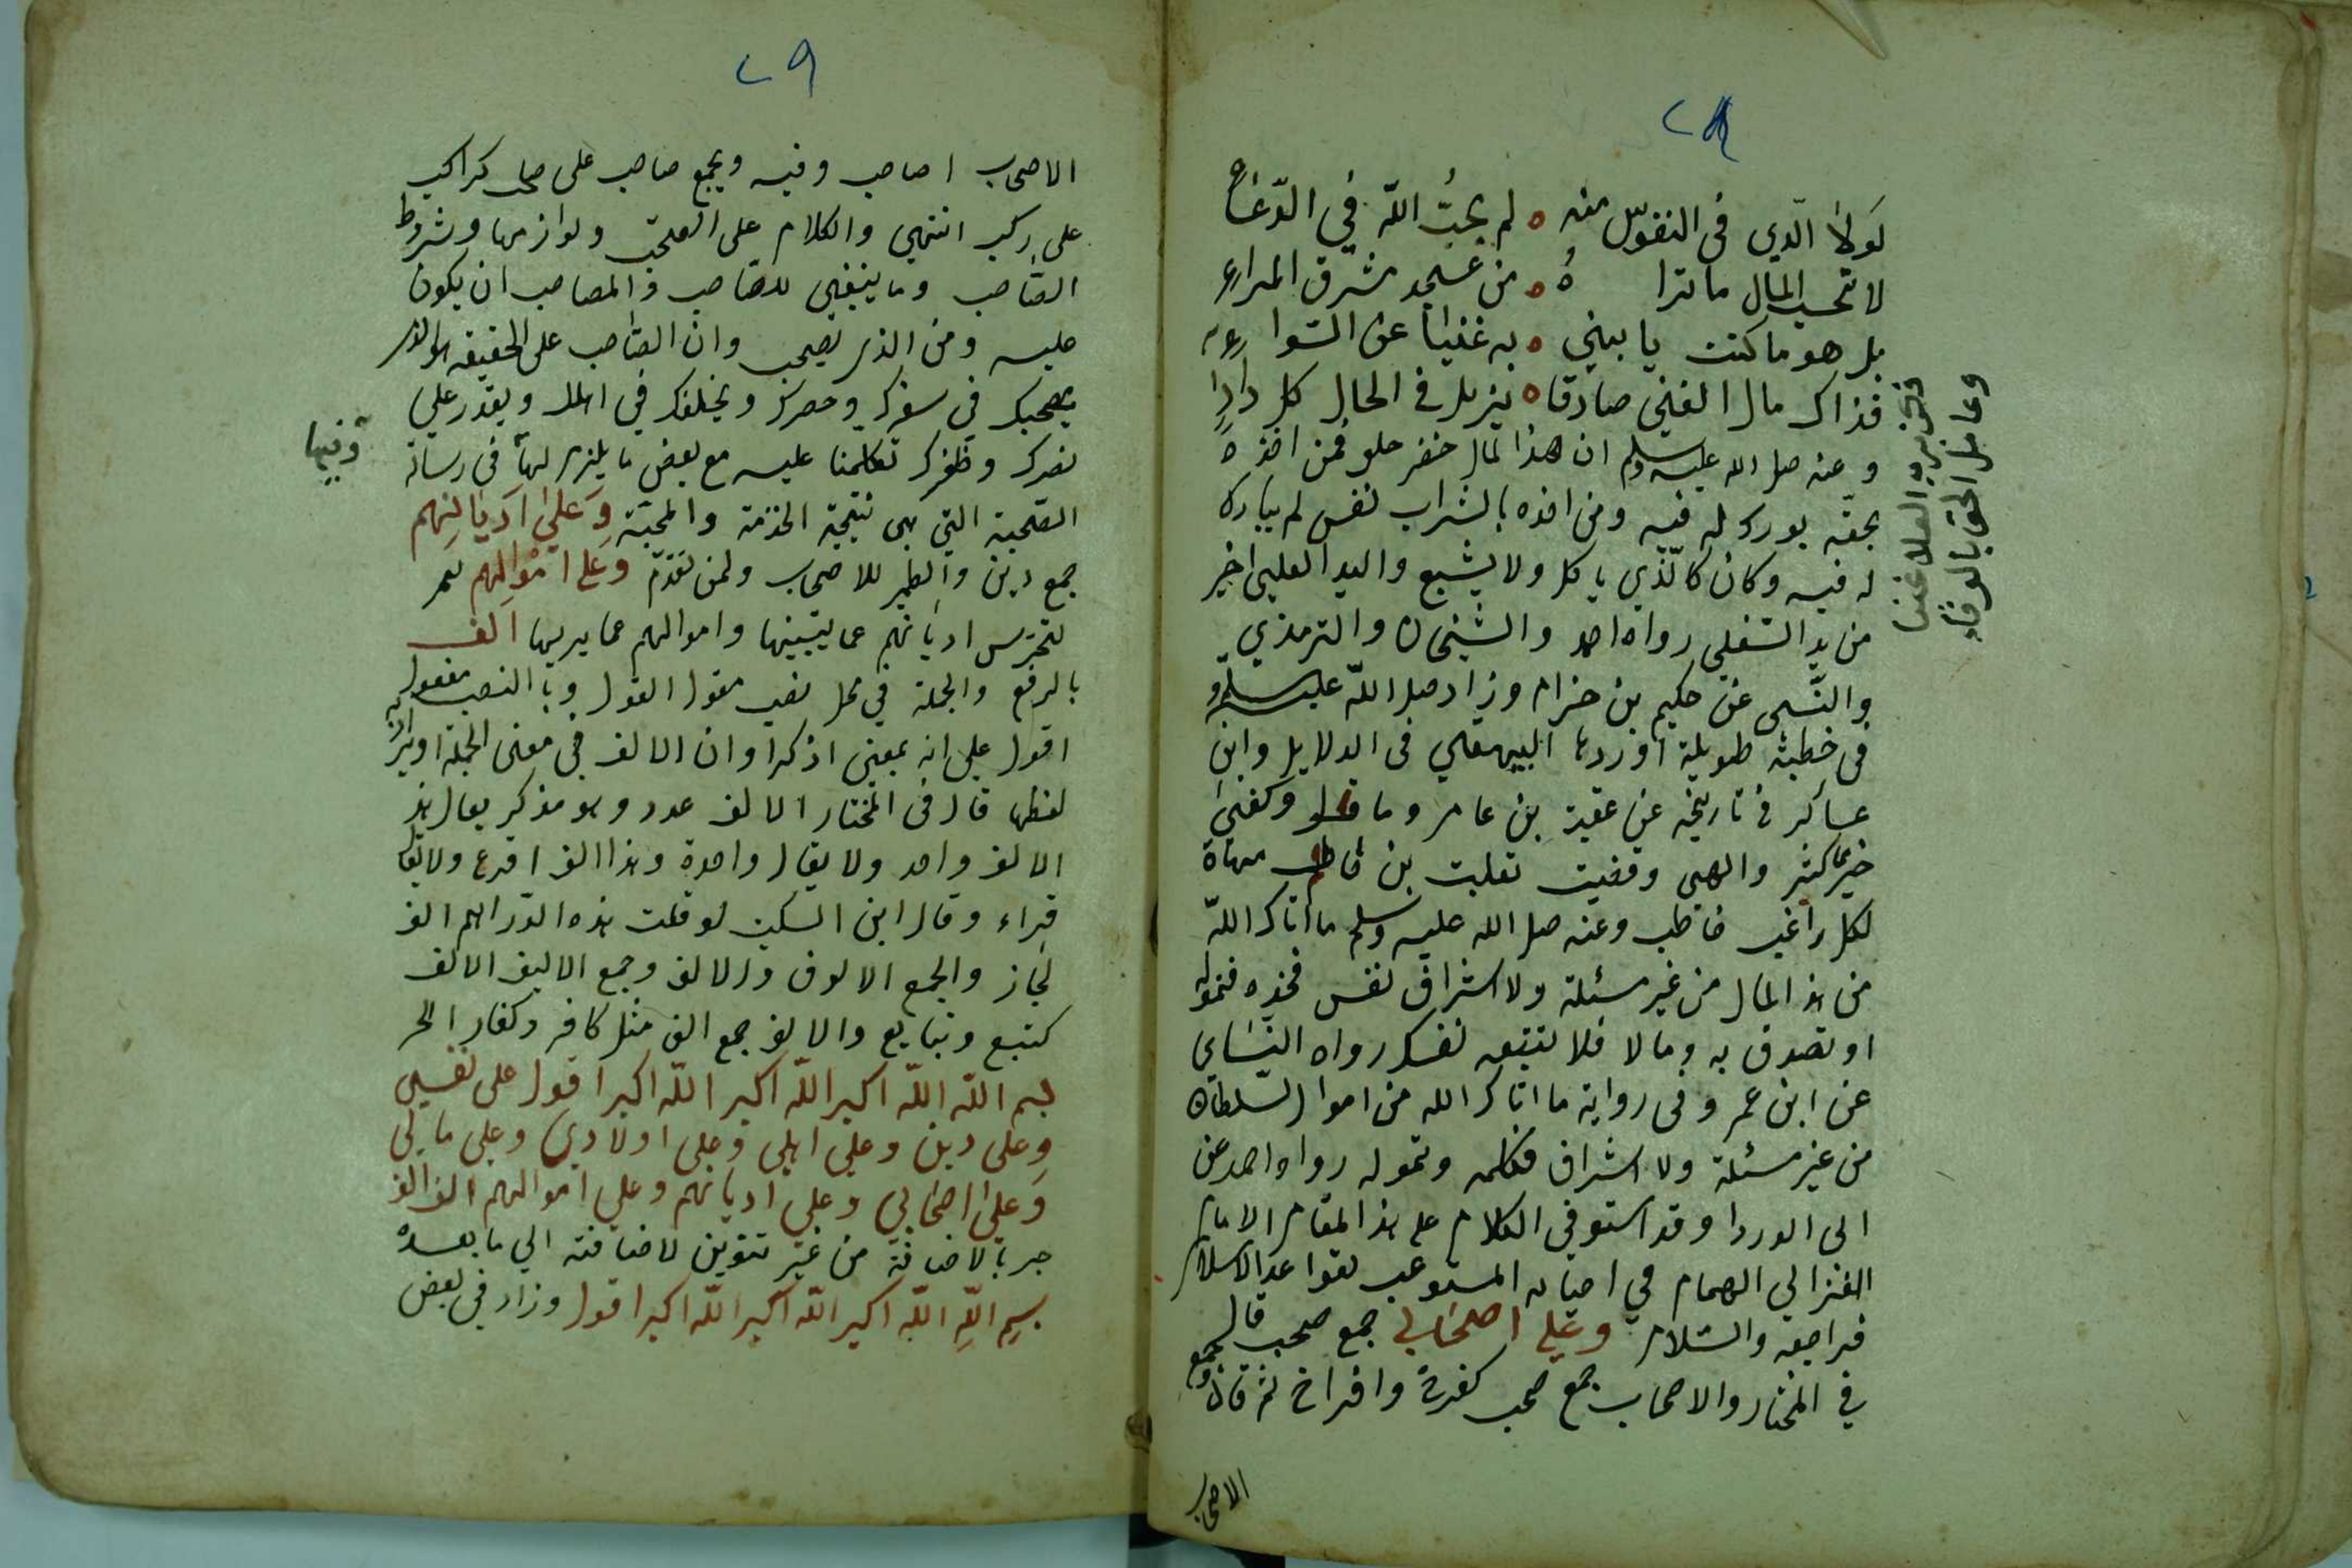 ٢٨
لولا الذي في النفوس منه ه لم يجب الله في الدعاء
لا تحسب المال ما تراه ه من عسجد مشرق المراء
بل هو ما كنت يا بيني ه به غنيا عن السواء
فذاك مال الغني صادقا ه يزيل في الحال كل داء
وعنه صلى الله عليه وسلم ان هذا المال خضر حلو فمن اخذه
بحقه بورك له فيه ومن اخذه باشراب نفس لم يبارك
له فيه وكان كالذي ياكل ولا يشبع واليد العليى اخير
من يد السفلى رواه احمد والشيخان والترمذي
والنسى عن حكيم بن حزام وزاد صلى الله عليه وسلم
في خطبته طويلة اوردها البيهقي في الدلايل وابن
عساكر في تاريخه عن عقبة بن عامر وما قل وكفى
خير مما كثر والهى وقضيت تعلبت بن
لكل راغب خاطب وعنه صلى الله عليه وسلم ما اتاك الله
من هذا المال من غير مسئلة ولا اشراف نفس فخذه فتموله
او تصدق به وما لا فلا تتبعه نفسك رواه النساي
عن ابن عمر وفي رواية ما اتاك الله من اموال السلطان
من غير مسئلة ولا اشراف فكله وتموله رواه احمد عن
ابى الدردا وقد استوفى الكلام على هذا المقام الامام
الغزالي الهمام في احيائه المستوعب لقواعد الاسلام
فراجعه والسلام وعلى اصحابي جمع صحب قال
في المختار والاصحاب جمع صحب كفرخ وافراخ ثم قال وجمع
الاصحاب
وعامل الحق بالوفاء
٢٩
الاصحاب اصاحب وفيه ويجمع صاحب على صحب كراكب
على ركب انتهى والكلام على الصحب ولوازمها وشروط
الصاحب وما ينبغي للصاحب والمصاحب ان يكون
عليه ومن الذي يصحب وان الصاحب على الحقيقه هو الذي
يصحبك في سفرك وحضرك ويخلفك في اهلك ويقدر على
نصرك وظفرك تكلمنا عليه مع بعض ما يلزم لها في رسالة
الصحبة التي هي نتيجة الخدمة والمحبة وعلى اديانهم
جمع دين والضمير للاصحاب ولمن تقدم وعلى اموالهم
لتحترس اديانهم عما يشينها واموالهم عما يريبها الف
بالرفع والجملة في محل نصب مقول القول وبالنصب مفعول به
اقول على انه بمعنى اذكر او ان الالف في معنى الجملة او يراد
لفظها قال في المختار الالف عدد وهو مذكر يقال هذا
الالف واحد ولا يقال واحدة وهذا الف اقرع ولا يقال
قرعاء وقال ابن السكيت لو قلت هذه الدراهم الف
لجاز والجمع الالوف والالاف وجمع الاليف الالف
كتبيع وتبايع والالاف جمع الف مثل كافر وكفار الخ
بسم الله الله اكبر الله اكبر الله اكبر اقول على نفسي
وعلى ديني وعلى اهلي وعلى اولادي وعلى مالي
وعلى اصحابي وعلى اديانهم وعلى اموالهم الف الف
جر بالاضافة من غير تنوين لاضافته الي ما بعده
بسم الله الله اكبر الله اكبر الله اكبر اقول وزاد في بعض